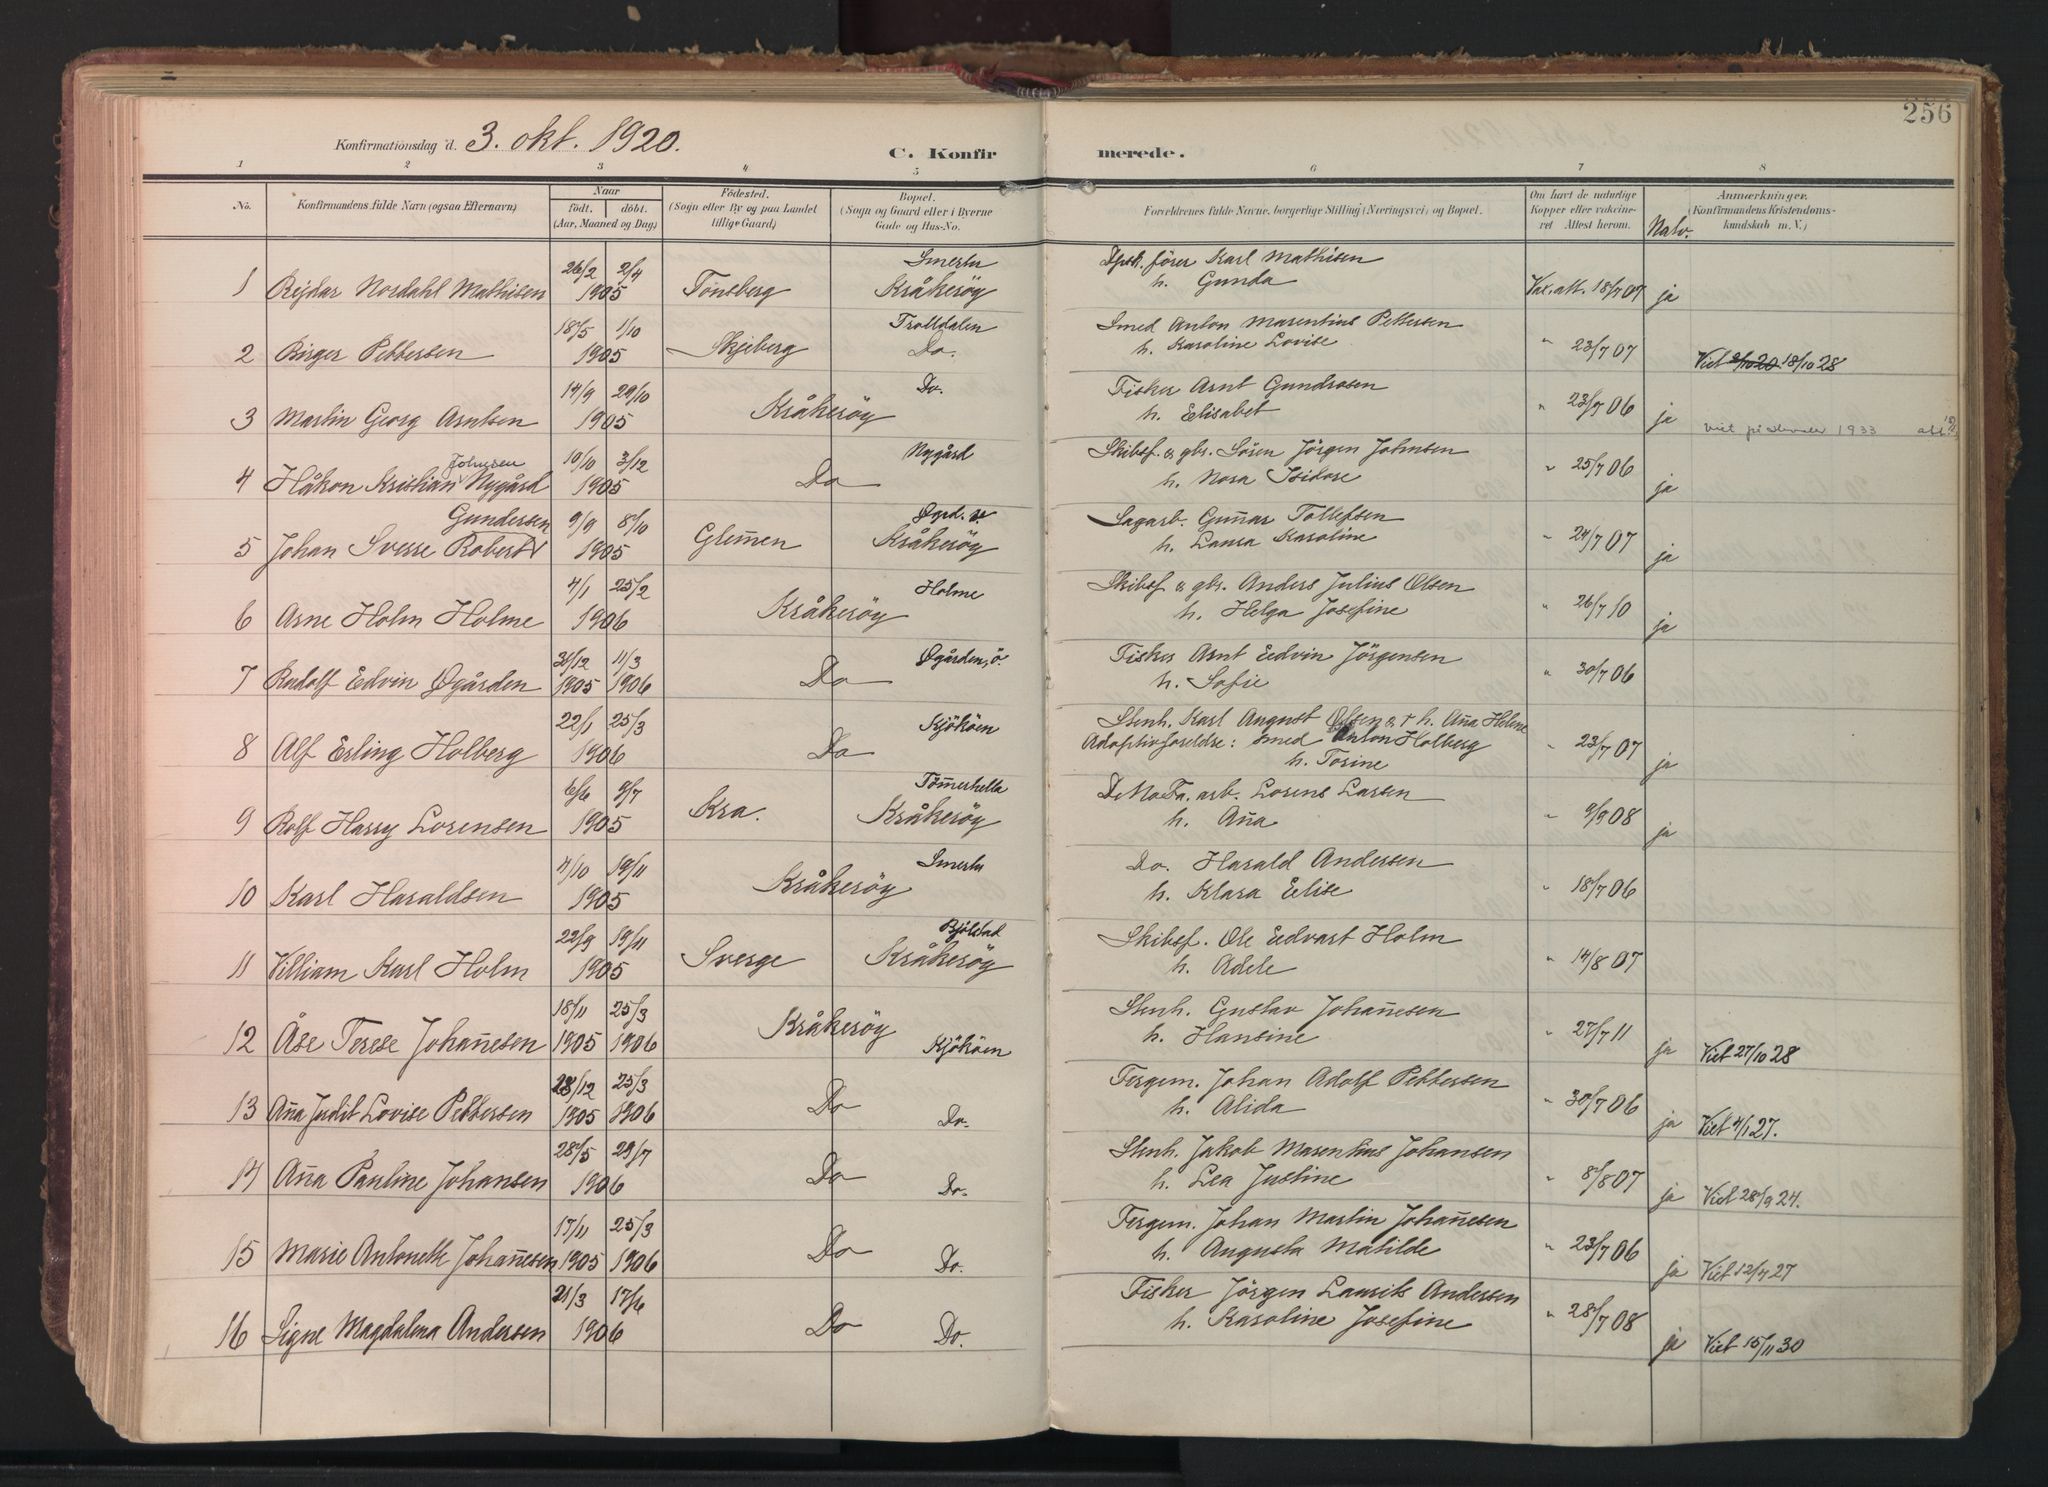 256
Konfirmationsdag d. 3. okt. 1920.
C. Konfirmerede.
1 2 3 4 5 6 7 8
No. Konfirmandens fulde Navn (ogsaa Efternavn) Naar født. døbt. (Aar, Maaned og Dag) Fødested. (Sogn eller By og paa Landet tillige Gaard) Bopæl. (Sogn og Gaard eller i Byerne Gade og Hus-No. Forældrenes fulde Navne, borgerlige Stilling (Næringsvei) og Bopæl. Om havt de naturlige Kopper eller vakcineret Attest herom. Natv. Anmærkninger. Konfirmandens Kristendomskundskab m. V.)
26/2 2/4 Smertu Karl Mathisen
1 Reidar Nordahl Mathisen 1905 Tønsberg Kråkerøy h. Gunda Vax. att. 18/7 07 ja
18/5 1/10 Trolldalen Smed Anton Marentius Pettersen
2 Birger Pettersen 1905 Skjeberg Do. h. Karoline Lovise " 23/7 07 Viet 2/10 20 18/10 28
14/9 29/10 Do. Fisker Arnt Gundrosen
3 Martin Georg Arntsen 1905 Kråkerøy h. Elisabet " 23/7 06 ja 1933
10/10 3/12 Nygård Skibsf. & gbr. Søren Jørgen Johnsen
4 Håkon Kristian Johnsen Nygård 1905 Do h. Nora Isidore " 25/7 06 ja
Gundersen 9/9 8/10 Øgrd. Sagarb. Gunnar Tollefsen
5 Johan Sverre Robert 1905 Glemmen Kråkerøy h. Laura Karoline " 24/7 07 ja
4/1 25/2 Holme Skibsf & gbr. Anders Julius Olsen
6 Arne Holm Holme 1906 Kråkerøy h. Helga Josefine " 26/7 10 ja
31/12 11/3 Øgården, ö. Fisker Arnt Edvin Jørgensen
7 Rudolf Edvin Øgården 1905 1906 Do h. Sofie " 30/7 06
22/1 25/3 Kjøköen Stenh. Karl August Olsen & † h. Anna Helene
8 Alf Erling Holberg 1906 Do Adoptivforeldre: smed Anton Holberg " 23/7 07 ja
h. Torine
6/6 9/7 Tømmerhella arb. Lorens Larsen
9 Rolf Harry Lorensen 1905 Kra. Kråkerøy h. Anna " 9/9 08 ja
4/10 19/11 Smertu Do. Harald Andersen
10 Karl Haraldsen 1905 Kråkerøy h. Klara Elise " 18/7 06
22/9 19/11 Bjølstad Skibsf. Ole Edvart Holm
11 Villiam Karl Holm 1905 Sverge Kråkerøy h. Adele " 14/8 07
18/11 25/3 Stenh. Gustav Johannesen
12 Åse Terese Johannesen 1905 1906 Kråkerøy Kjøköen h. Hansine " 27/7 11 ja Viet 27/10 28
28/12 25/3 Fergem. Johan Adolf Pettersen
13 Anna Judit Lovise Pettersen 1905 1906 Do Do. h. Alida " 30/7 06 ja Viet 4/1 27.
28/5 29/7 Stenh. Jakob Marentius Johansen
14 Anna Pauline Johansen 1906 Do Do. h. Lea Justine " 8/8 07 ja Viet 28/9 24.
17/11 25/3 Fergem. Johan Martin Johannesen
15 Marie Antonette Johannesen 1905 1906 Do Do. h. Augusta Matilde " 23/7 06 ja Viet 12/7 27
21/3 17/6 Fisker Jørgen Laurits Andersen
16 Signe Magdalena Andersen 1906 Do Do. h. Karoline Josefine " 28/7 08 ja Viet 15/11 30